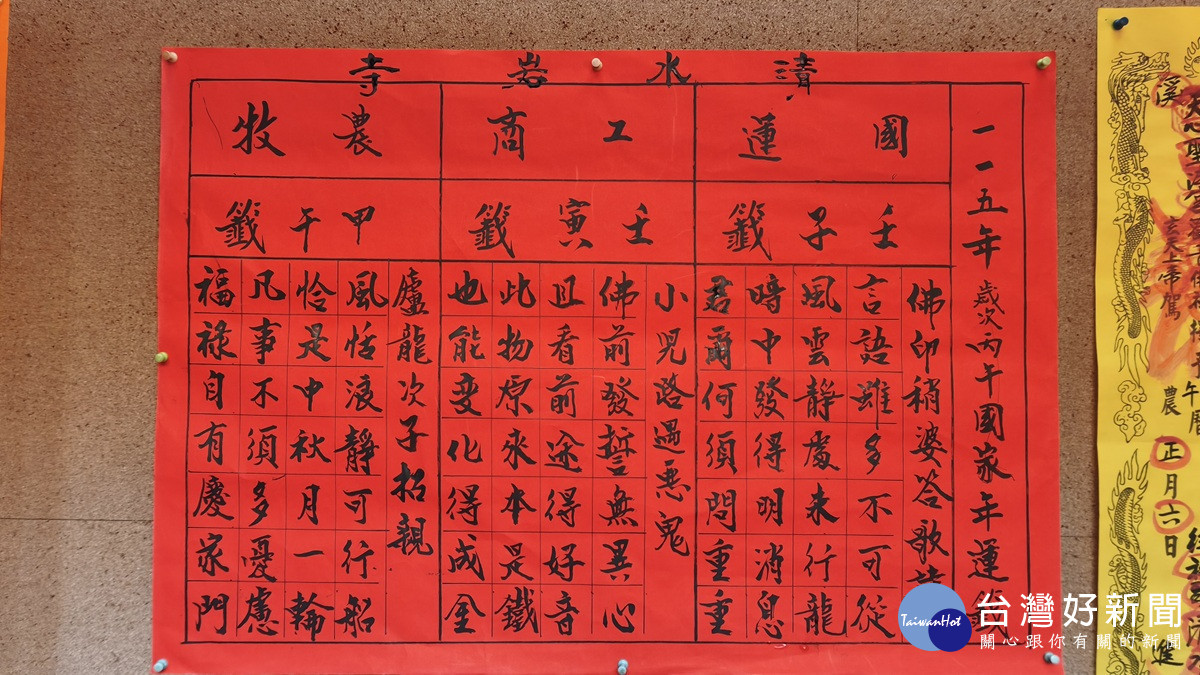 清水岩寺
一一五年歲次丙午國家年運籤
國運
壬子籤
佛印稍婆答歌
言語雖多不可從
風雲靜處未行龍
暗中發得明消息
君爾何須問重重
工商
壬寅籤
小兒路遇惡鬼
佛前發誓無異心
且看前途得好音
此物原來本是鐵
也能變化得成金
農牧
甲午籤
廬龍次子招親
風恬浪靜可行船
恰是中秋月一輪
凡事不須多憂慮
福祿自有慶家門
農
正月六日
溪
TaiwanHot
台灣好新聞
關心跟你有關的新聞